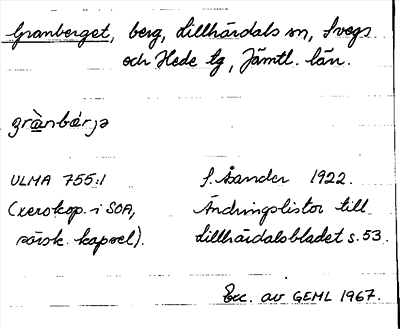 Granberget, berg, Lillhärdals sn, Svegs
och Hede tg, Jämtl. län.
grànbærjə
ULMA 755:1 S. Åsander 1922.
(xerokop. i SOA, Ändringslistor till
särsk. kapsel). Lillhärdalsbladet s. 53.
Exc. av GEML 1967.